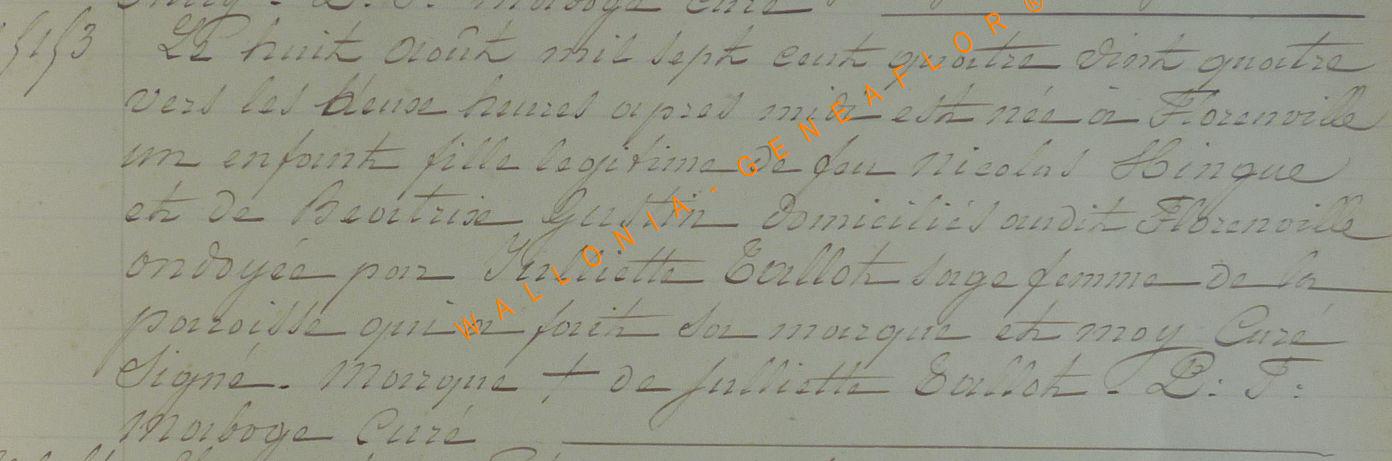 L. J. Maboge Curé
Le huit août mil sept cent quatre vint quatre
vers les deux heures apres midi est née à Florenville
un enfant fille legitime de feu Nicolas Hingue
et de Beatrix Gustin domiciliés audit Florenville
ondoyée par Julliette Tallot sage femme de la
paroisse qui a fait sa marque et moy Curé
Signé. Marque + de Julliette Tallot. L. J.
Maboge Curé
WALLONIA-GENEAFLOR®